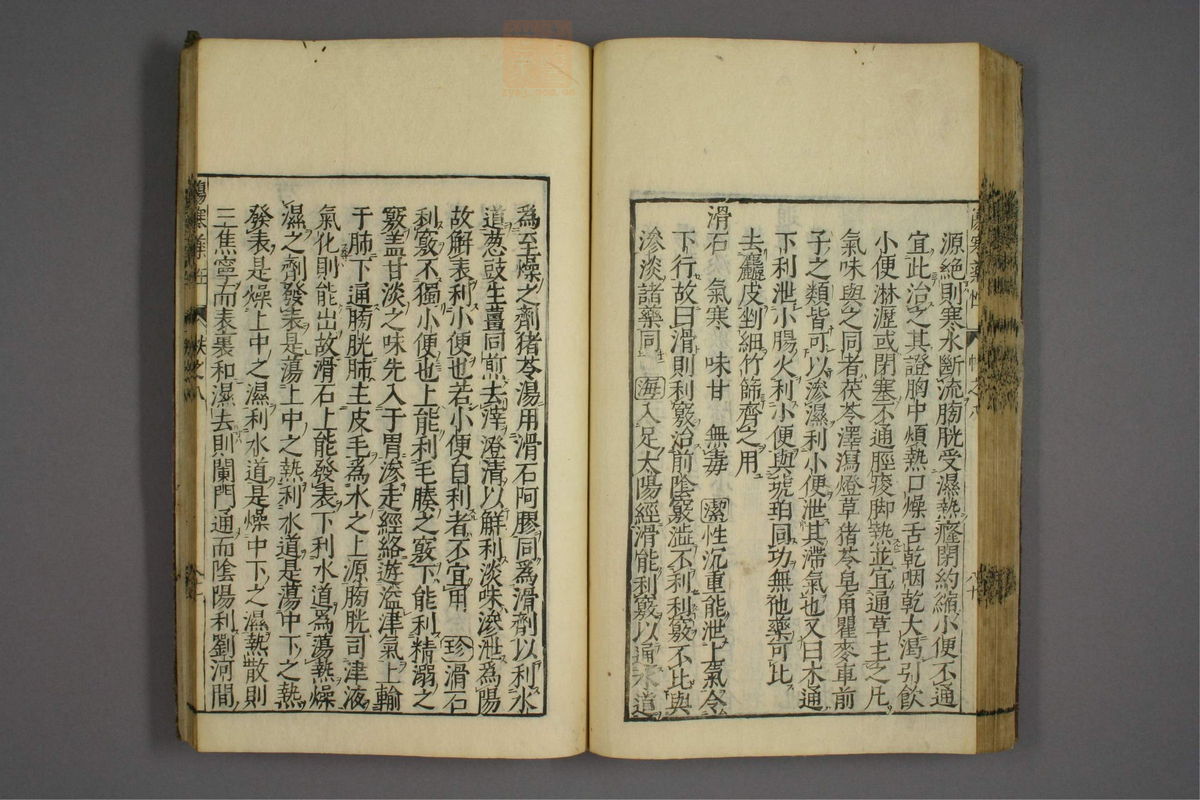 源絕則寒水斷流膀胱受濕熱癃閉約縮小便不通
宜此治之其證胸中煩熱口燥舌乾咽乾大渴引飲
小便淋瀝或閉塞不通脛痠脚熱並宜通草主之凡
氣味與之同者茯苓澤瀉燈草猪苓皂角瞿麥車前
子之類皆可以滲濕利小便泄其滯氣也又曰木通
下利泄小腸火利小便與琥珀同功無他藥可比
去麤皮剉細竹篩齊之用
滑石　氣寒　味甘　無毒　潔性沉重能泄上氣令
下行故曰滑則利竅治前陰竅澁不利利竅不比與
滲淡諸藥同　海入足太陽經滑能利竅以通水道
爲至燥之劑猪苓湯用滑石阿膠同爲滑劑以利水
道葱鼓生薑同煎去滓澄清以解利淡味滲泄爲陽
故解表利小便也若小便自利者不宜用　珍滑石
利竅不獨小便也上能利毛腠之竅下能利精溺之
竅盖甘淡之味先入于胃滲走經絡遊溢津氣上輸
于肺下通膀胱肺主皮毛爲水之上源膀胱司津液
氣化則能出故滑石上能發表下利水道爲蕩熱燥
濕之劑發表是蕩上中之熱利水道是蕩中下之熱
發表是燥上中之濕利水道是燥中下之濕熱散則
三焦寧而表裏和濕去則闌門通而陰陽利劉河間